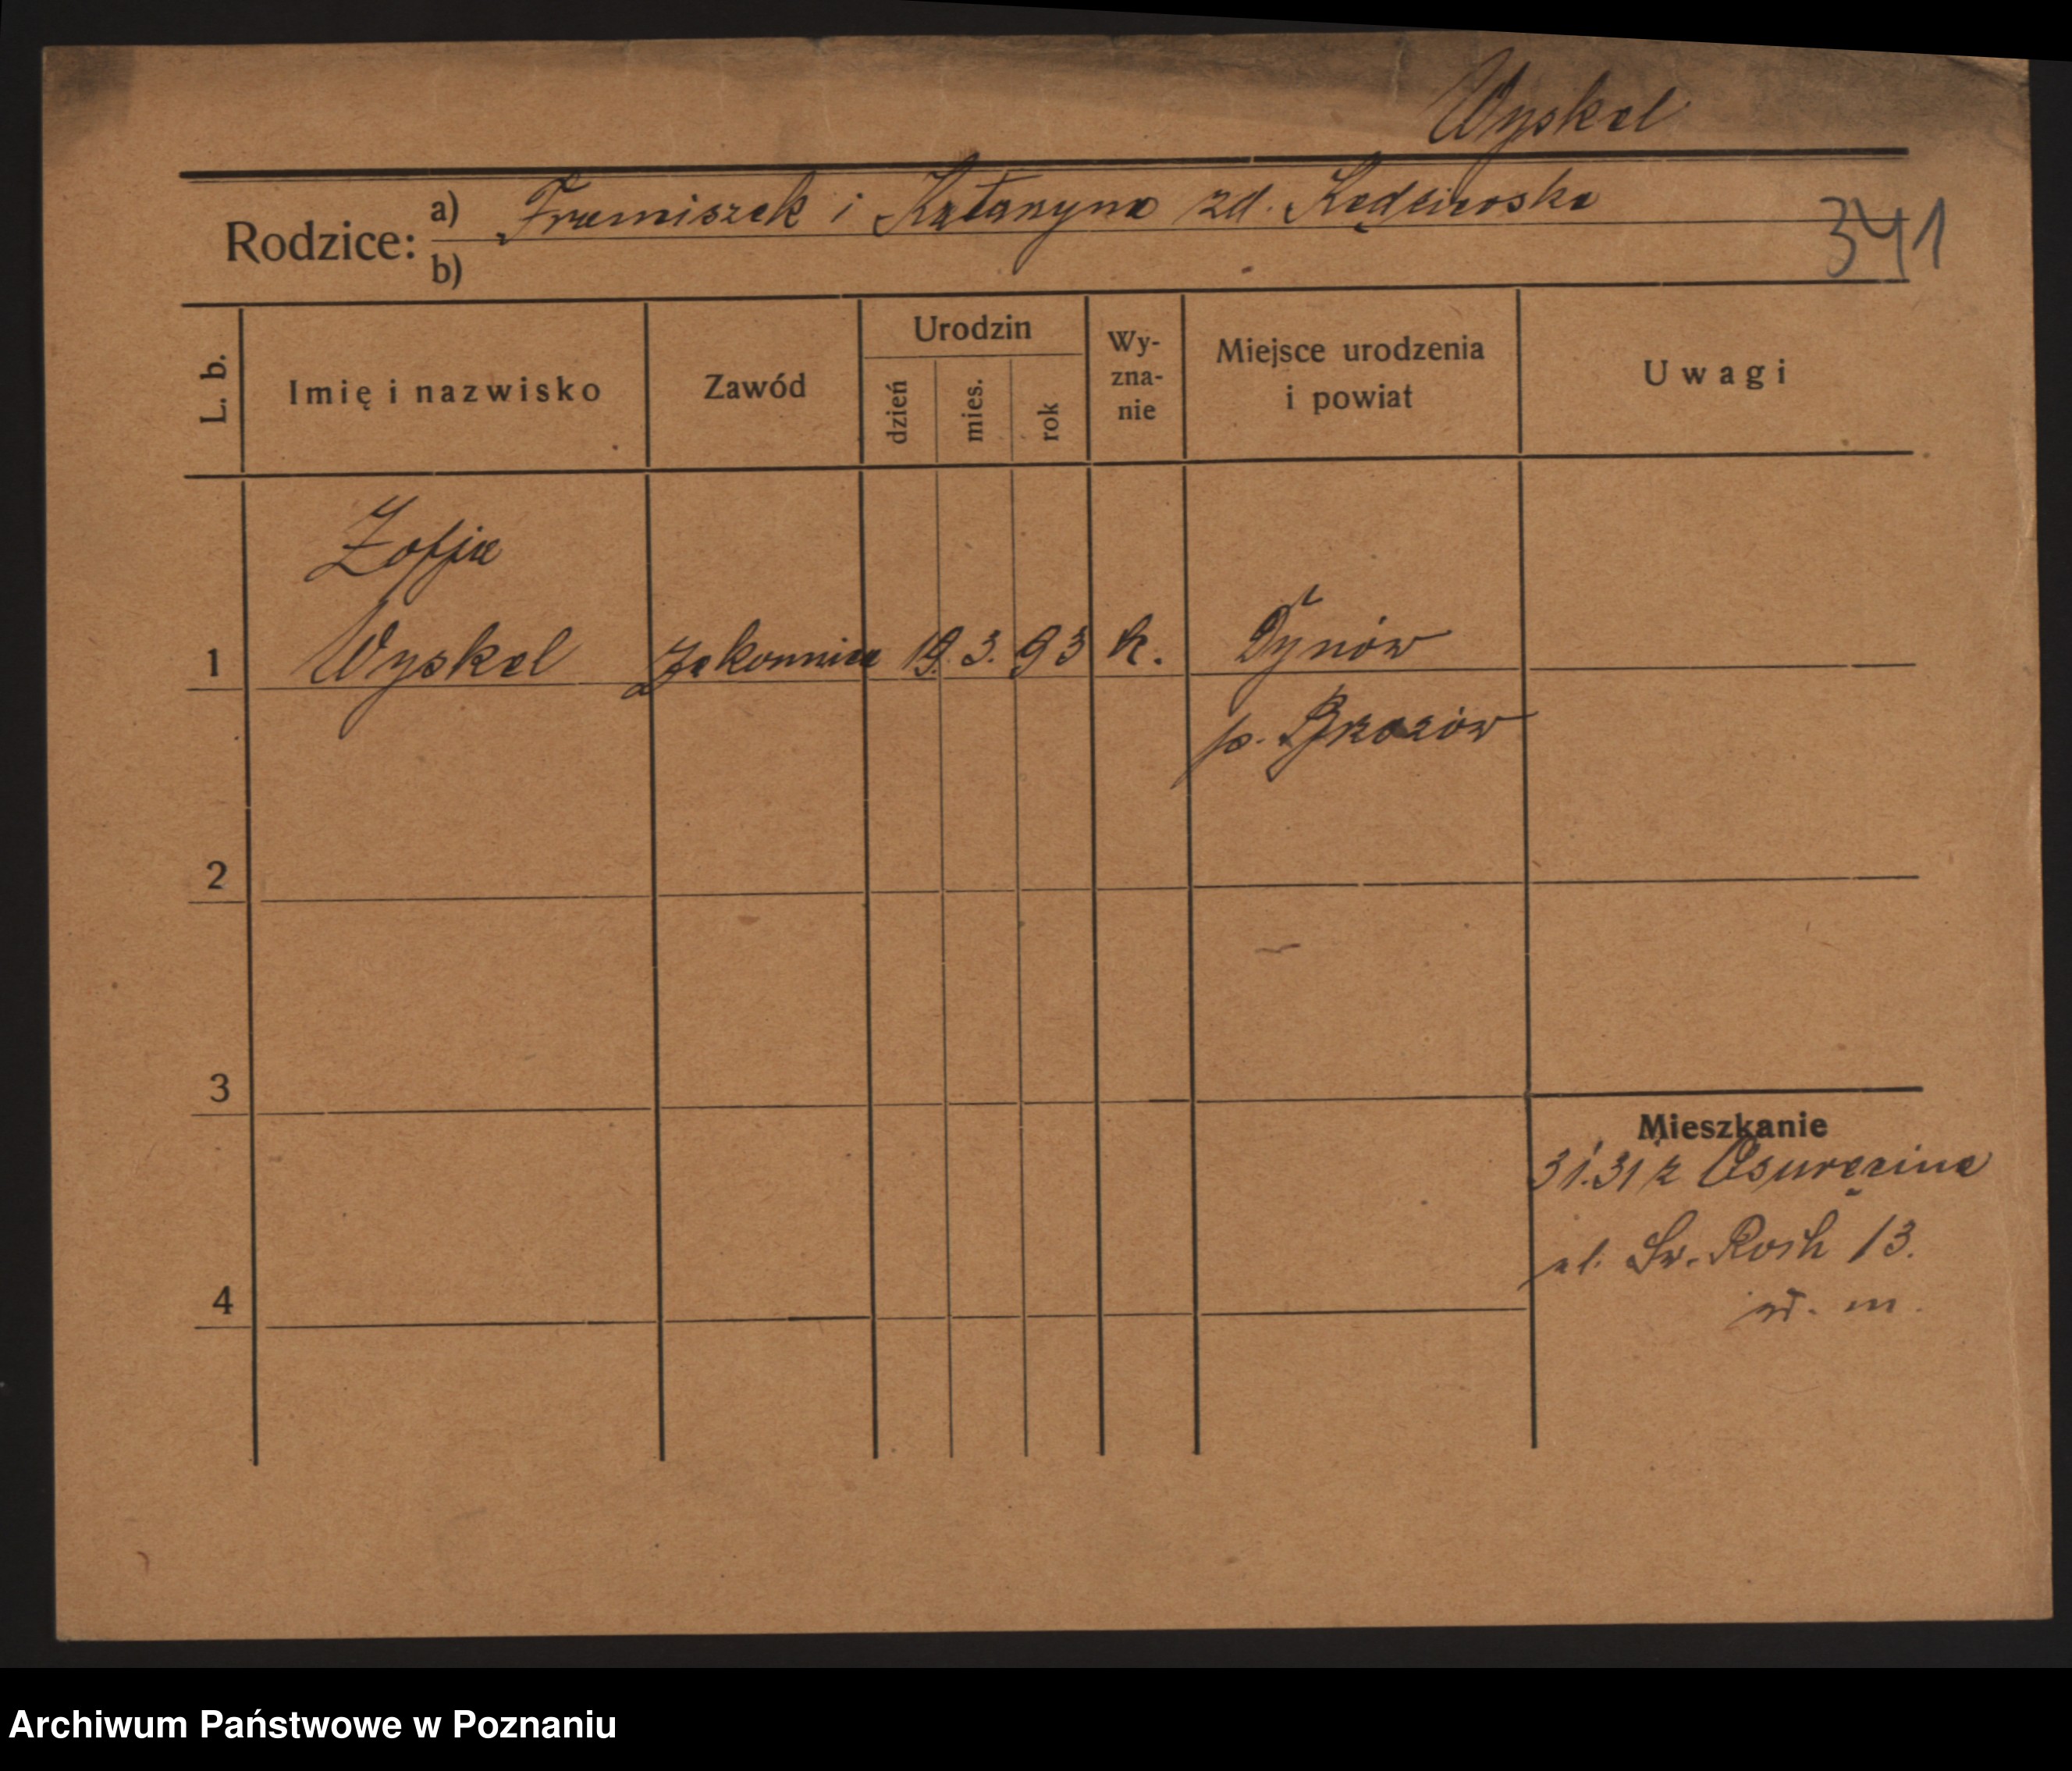 Wyskel
Rodzice: a) Franciszek i Katarzyna zd.
341
b)
L. b.
Imię i nazwisko
Zawód
Urodzin
dzień
mies.
rok
Wy-
zna-
nie
Miejsce urodzenia
i powiat
Uwagi
Zofja
1 Wyskel Zakonnica 19. 3. 93 k. Dynów
p. Brzozów
2
3
Mieszkanie
z
ul. Św. Roch 13.
4
m.
Archiwum Państwowe w Poznaniu